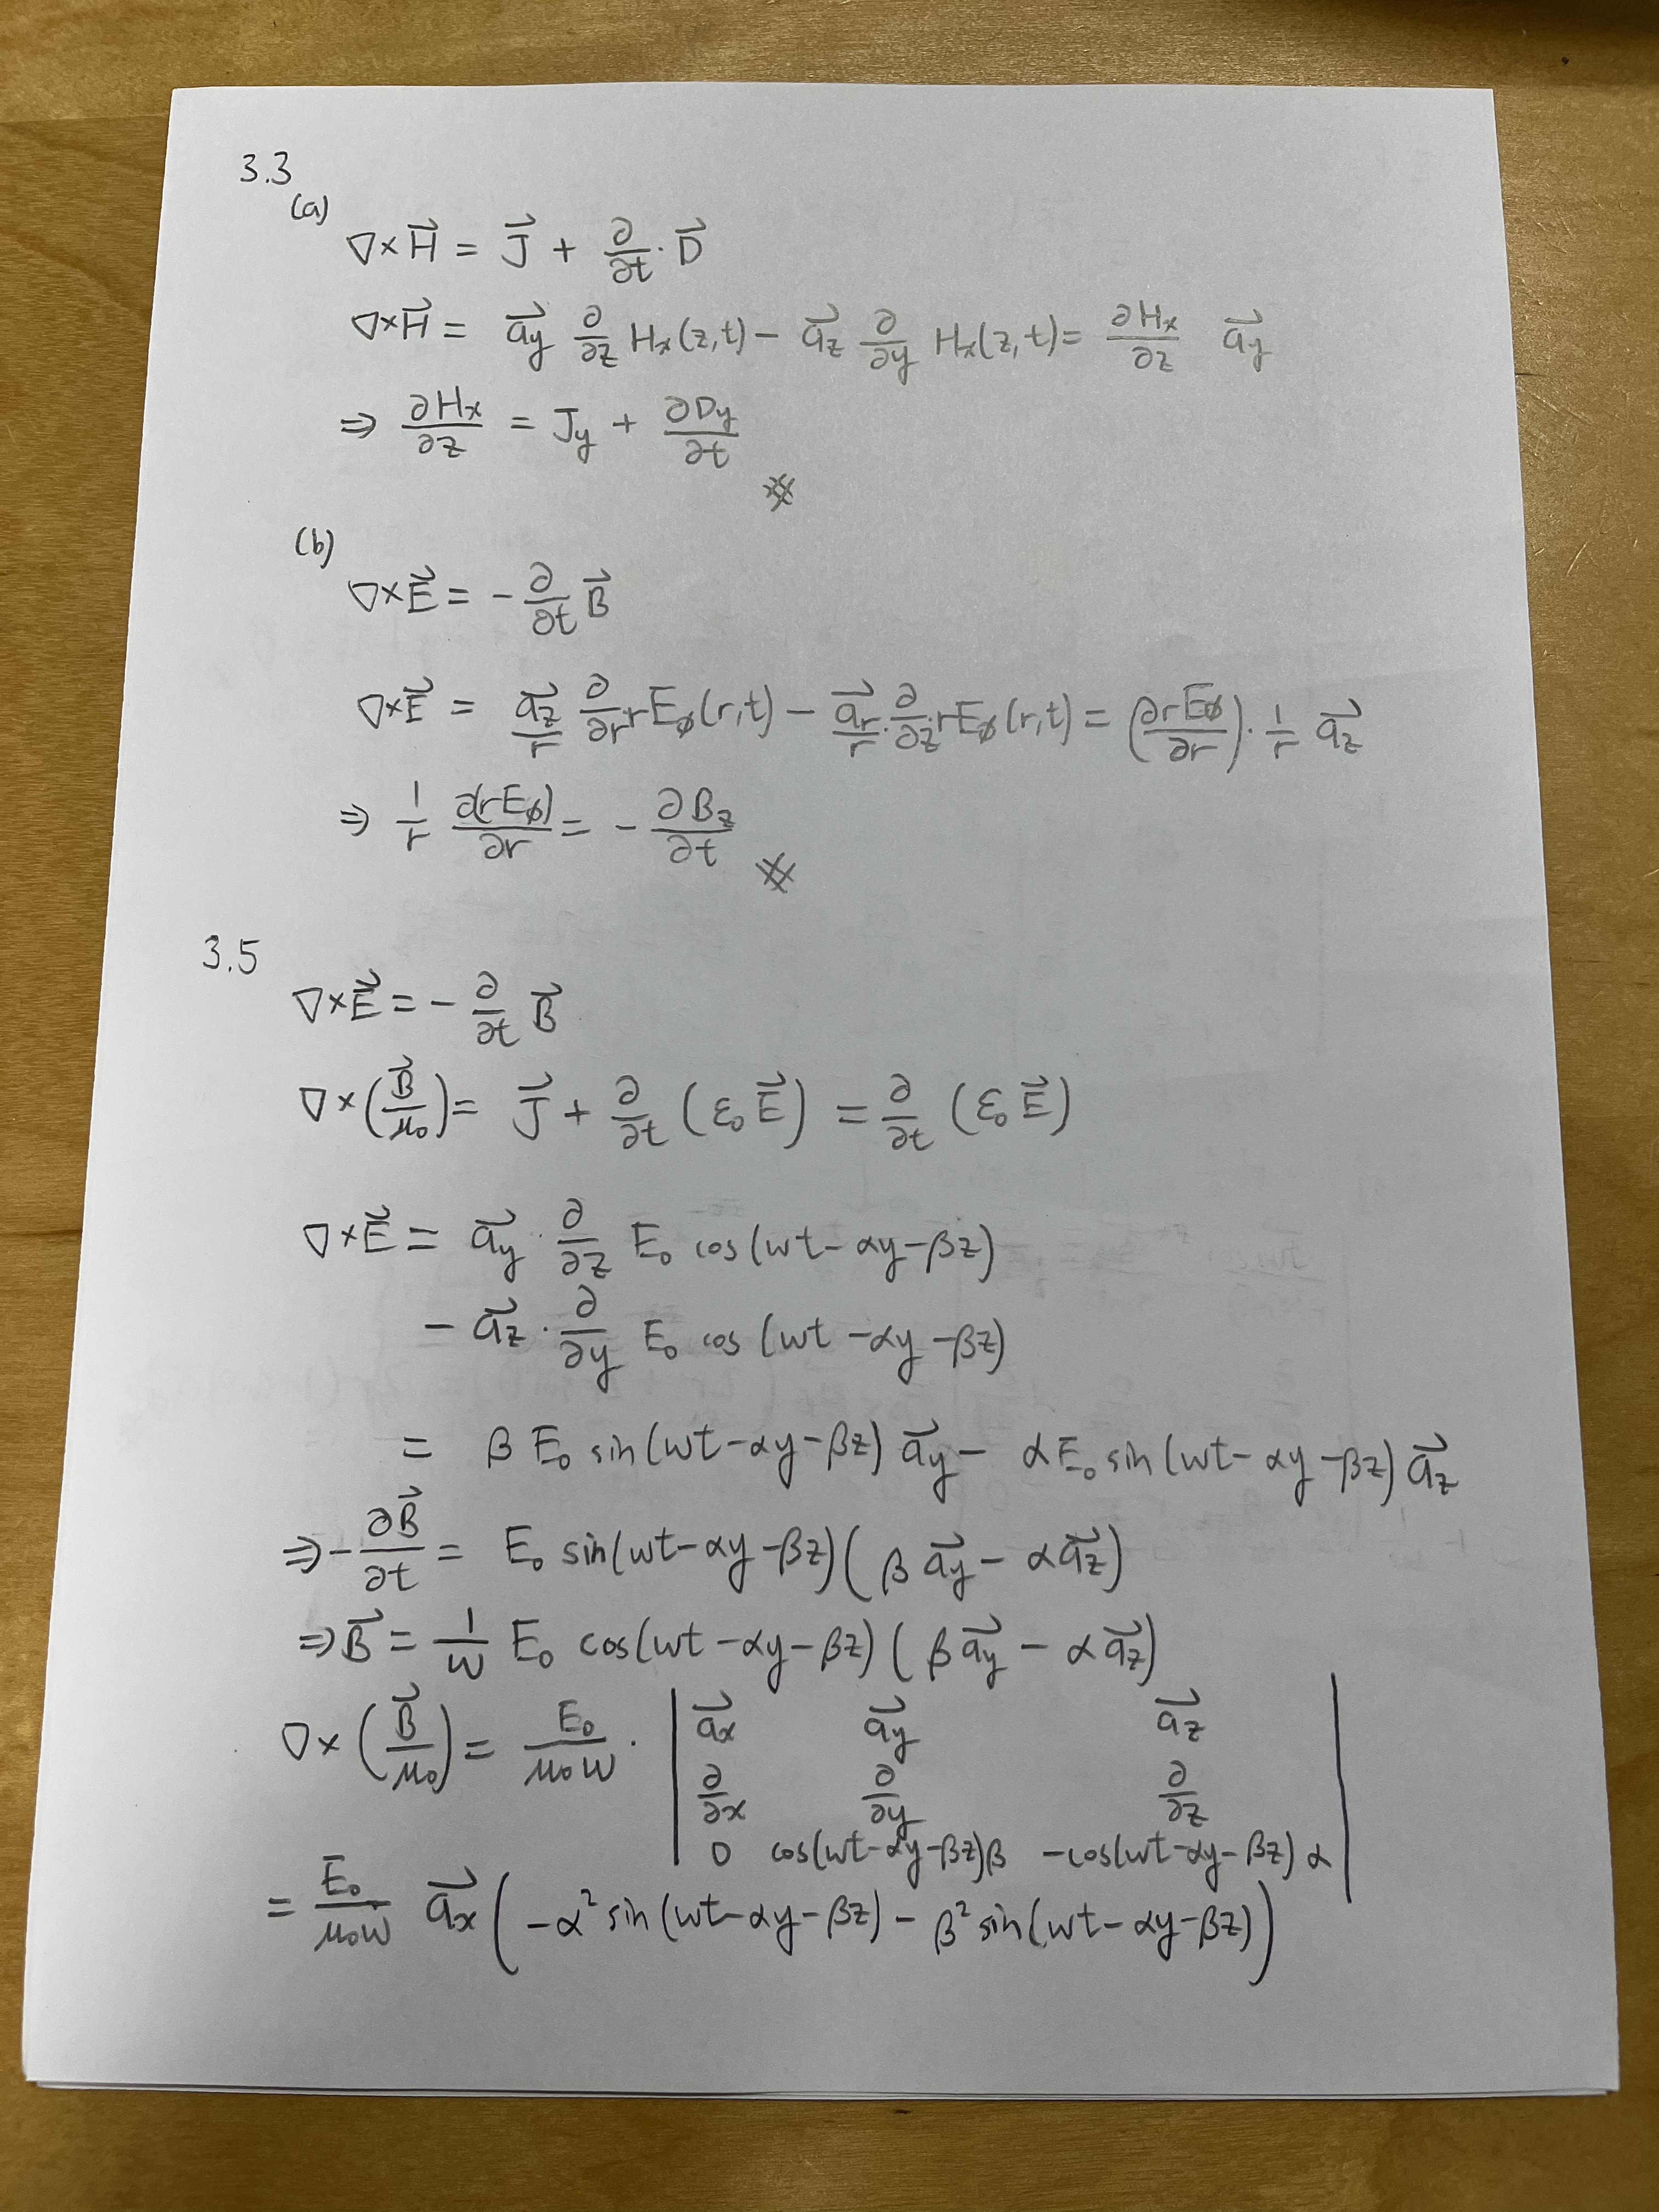 3.3
(a)
∇×H⃗ = J⃗ + ∂/∂t · D⃗
∇×H⃗ = a⃗y ∂/∂z Hx(z,t) − a⃗z ∂/∂y Hx(z,t) = ∂Hx/∂z a⃗y
⇒ ∂Hx/∂z = Jy + ∂Dy/∂t
(b)
∇×E⃗ = −∂/∂t B⃗
∇×E⃗ = a⃗z/r ∂/∂r rEø(r,t) − a⃗r/r · ∂/∂z rEø(r,t) = (∂rEø/∂r) · 1/r a⃗z
⇒ 1/r ∂(rEø)/∂r = − ∂Bz/∂t
3.5
∇×E⃗ = − ∂/∂t B⃗
∇×(B⃗/μ₀) = J⃗ + ∂/∂t (ε₀E⃗) = ∂/∂t (ε₀E⃗)
∇×E⃗ = a⃗y · ∂/∂z E₀ cos(wt−αy−βz)
− a⃗z · ∂/∂y E₀ cos(wt−αy−βz)
= βE₀ sin(wt−αy−βz) a⃗y − αE₀ sin(wt−αy−βz) a⃗z
⇒ −∂B⃗/∂t = E₀ sin(wt−αy−βz)(βa⃗y − αa⃗z)
⇒ B⃗ = 1/w E₀ cos(wt−αy−βz)(βa⃗y − αa⃗z)
∇×(B⃗/μ₀) = E₀/μ₀w · | a⃗x a⃗y a⃗z
∂/∂x ∂/∂y ∂/∂z
0 cos(wt−αy−βz)β −cos(wt−αy−βz)α |
= E₀/μ₀w a⃗x (−α² sin(wt−αy−βz) − β² sin(wt−αy−βz))